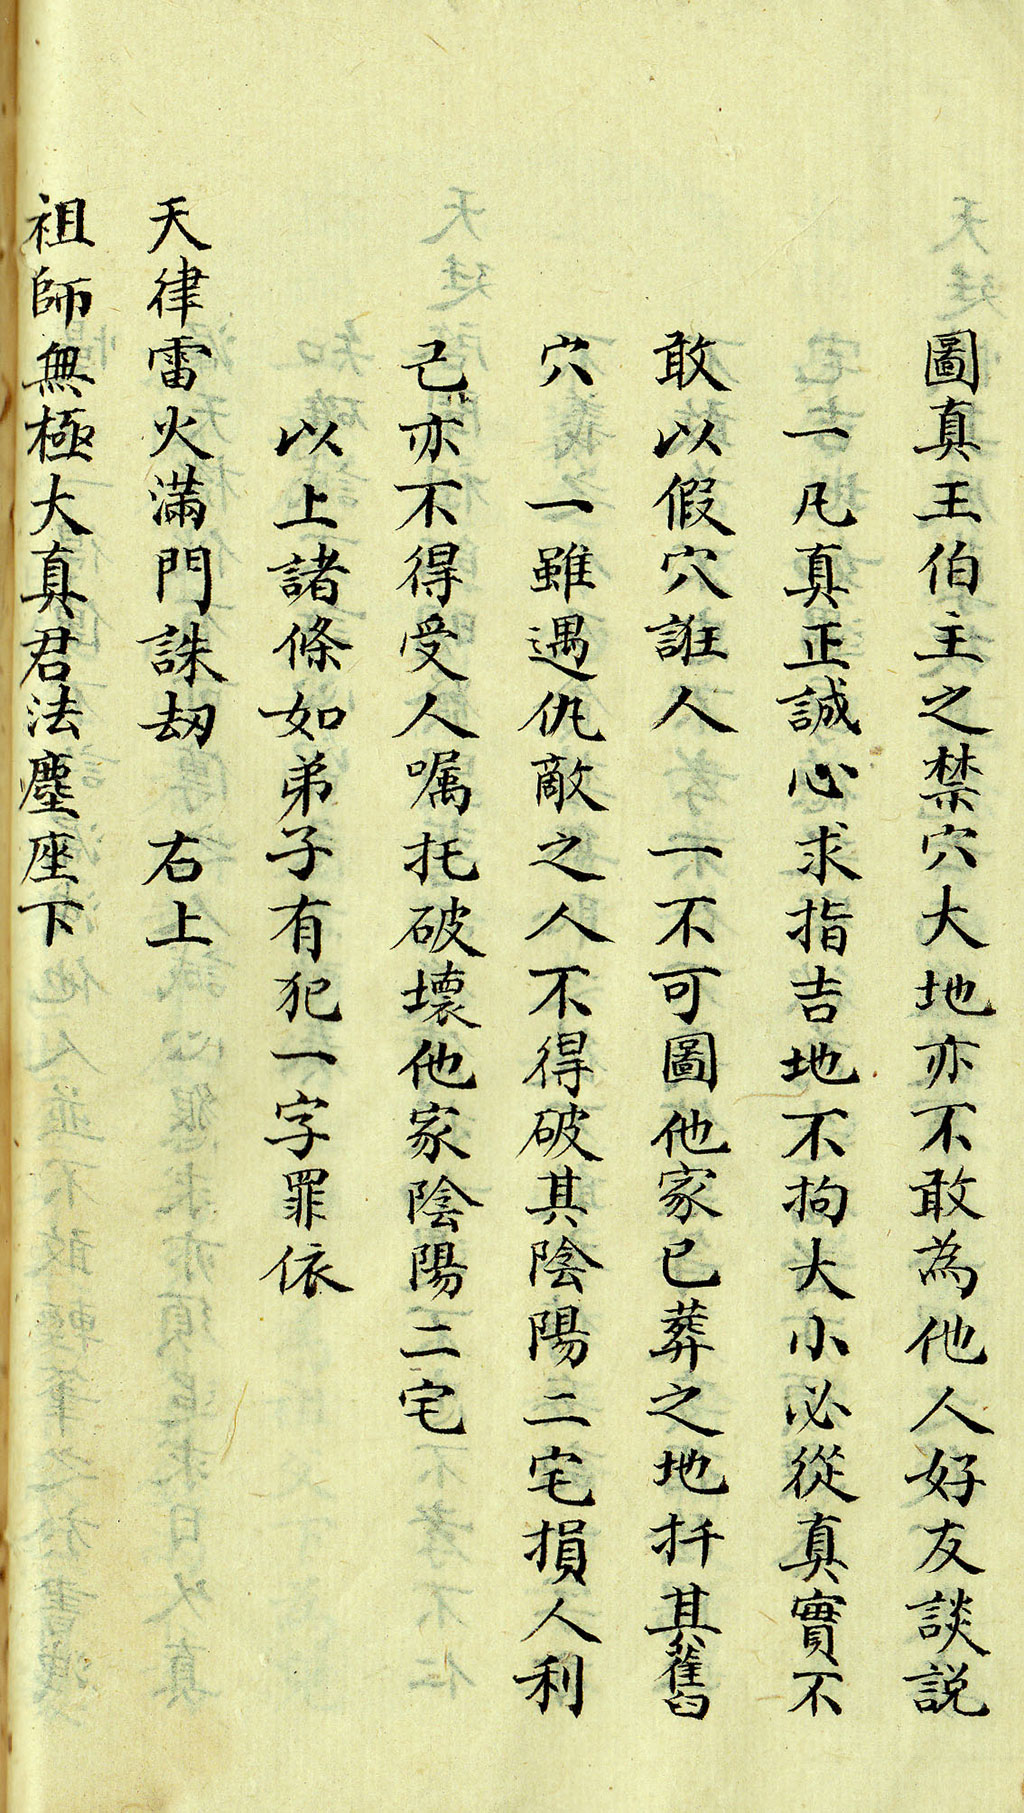 圖真王伯主之禁穴大地亦不敢為他人好友談説
一凡真正誠心求指吉地不拘大小必從真實不
敢以假穴誑人　一不可圖他家已葬之地扦其舊
穴　一雖遇仇敵之人不得破其陰陽二宅損人利
己亦不得受人嘱托破壞他家陰陽二宅
以上諸條如弟子有犯一字罪依
天律雷火滿門誅劫　右上
祖師無極大真君法座下